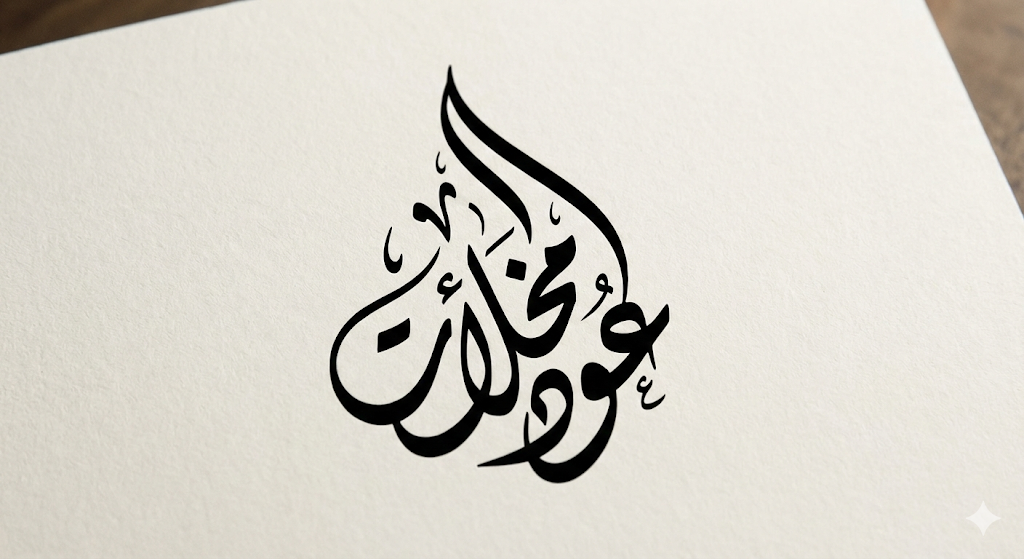 عُود
مخلأت